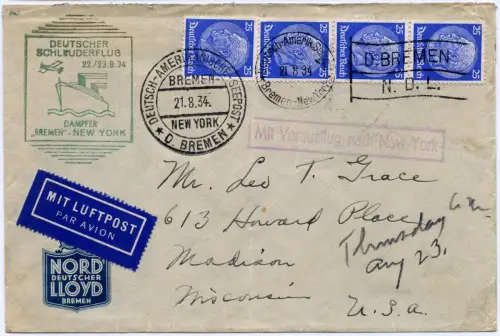 DEUTSCHER
SCHLEUDERFLUG
22./23.8.34
DAMPFER
"BREMEN"-NEW YORK
DEUTSCH-AMERIKANISCHE SEEPOST
BREMEN-
21.8.34.
NEW YORK
★ D. BREMEN ★
25 Deutsches Reich
25 Deutsches Reich
25 Deutsches Reich
25 Deutsches Reich
21.8.34
Bremen-New York
D. BREMEN
N.D.L.
Mit Vorausflug nach New-York
MIT LUFTPOST
PAR AVION
Mr. Leo T. Grace
613 Howard Place
Madison
Wisconsin
U.S.A.
Thursday
Aug 23.
NORD
DEUTSCHER
LLOYD
BREMEN